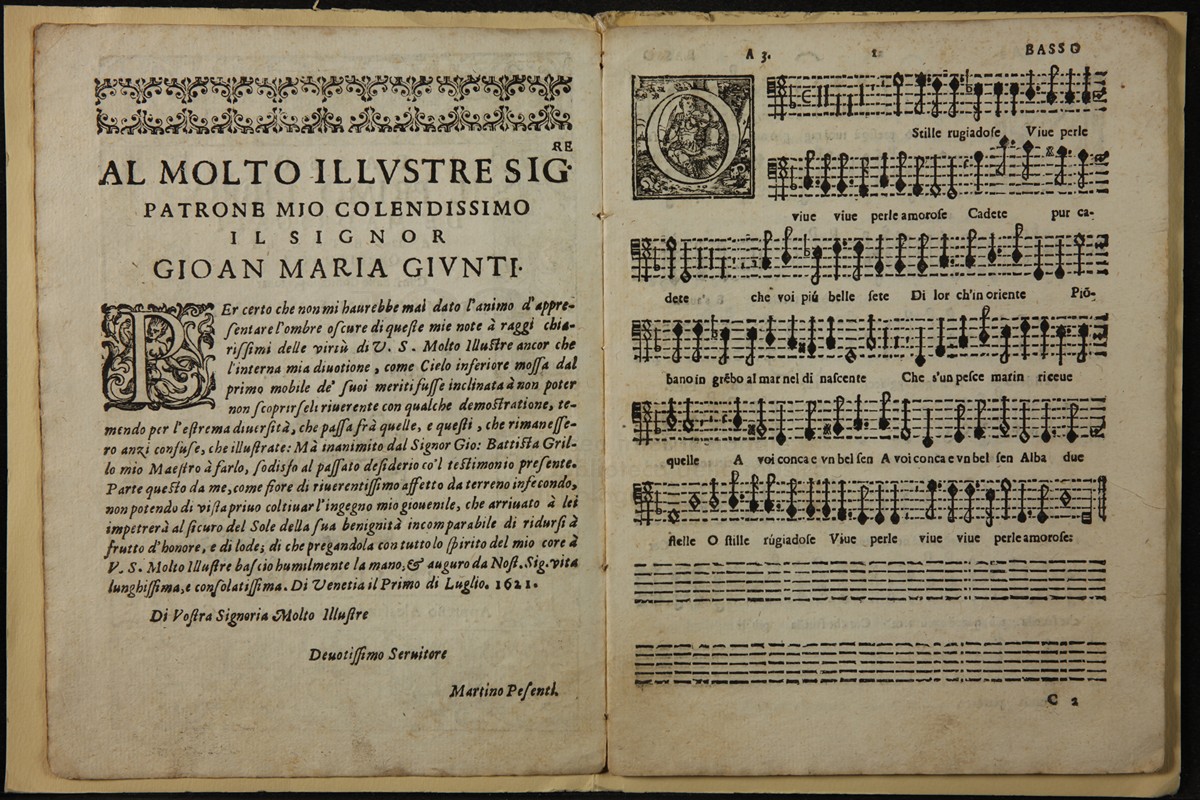 AL MOLTO ILLVSTRE SIG.RE
PATRONE MIO COLENDISSIMO
IL SIGNOR
GIOAN MARIA GIVNTI.
PEr certo che non mi haurebbe mai dato l'animo d'appre-
ſentare l'ombre oſcure di queſte mie note à raggi chia-
riſſimi delle virtù di V. S. Molto Illuſtre ancor che
l'interna mia diuotione, come Cielo inferiore moſſa dal
primo mobile de' ſuoi meriti fuſſe inclinata à non poter
non ſcoprirſeli riuerente con qualche demoſtratione, te-
mendo per l'eſtrema diuerſità, che paſſa frà quelle, e queſti, che rimaneſſe-
ro anzi confuſe, che illuſtrate: Mà inanimito dal Signor Gio: Battiſta Gril-
lo mio Maeſtro à farlo, ſodisfo al paſſato deſiderio co'l teſtimonio preſente.
Parte queſto da me, come fiore di riuerentiſſimo affetto da terreno infecondo,
non potendo di viſta priuo coltiuar l'ingegno mio giouenile, che arriuato à lei
impetrerà al ſicuro del Sole della ſua benignità incomparabile di ridurſi à
frutto d'honore, e di lode; di che pregandola con tutto lo ſpirito del mio core à
V. S. Molto Illuſtre baſcio humilmente la mano, & auguro da Noſt. Sig. vita
lunghiſſima, e conſolatiſſima. Di Venetia il Primo di Luglio. 1621.
Di Voſtra Signoria Molto Illuſtre
Deuotiſſimo Seruitore
Martino Peſenti.
A 3. 1 BASSO
O Stille rugiadoſe Viue perle
viue viue perle amoroſe Cadete pur ca-
dete che voi piú belle ſete Di lor ch'in oriente Piō-
bano in grēbo al mar nel dì naſcente Che s'un peſce marin riceue
quelle A voi conca e vn bel ſen A voi conca e vn bel ſen Alba due
ſtelle O ſtille rúgiadoſe Viue perle viue viue perle amoroſe:
C 2